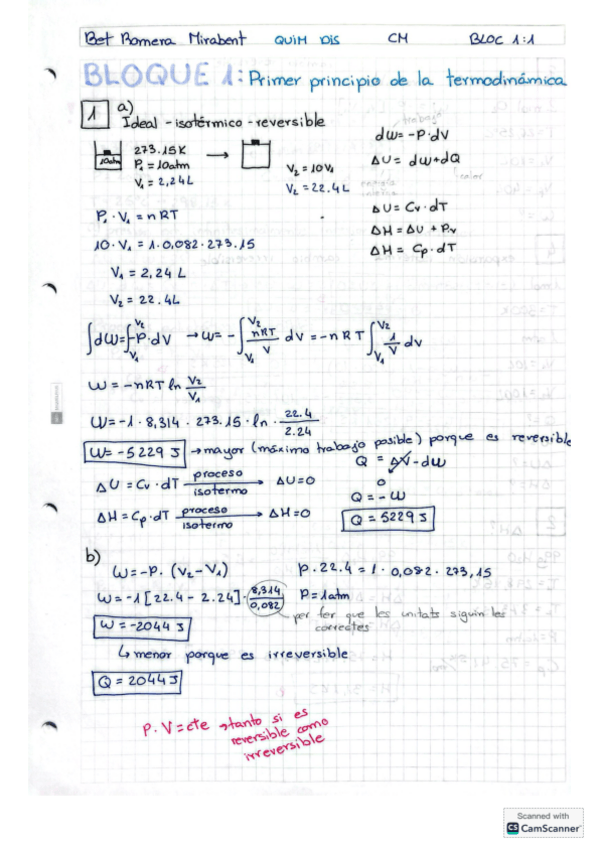 Bet Romera Mirabent QUIM DIS CM BLOC 1:1
BLOQUE 1: Primer principio de la termodinámica
1 a) Ideal - isotérmico - reversible
trabajo
dW = -P·dV
10atm
273.15K
P₁ = 10atm
V₁ = 2,24L
→
V₂ = 10V₁
V₂ = 22.4L
ΔU = dW + dQ
energía interna
calor
ΔU = Cv·dT
ΔH = ΔU + PV
ΔH = Cp·dT
P₁·V₁ = nRT
10·V₁ = 1·0,082·273.15
V₁ = 2,24 L
V₂ = 22.4L
∫dW = ∫_V₁^V₂ -P·dV → W = -∫_V₁^V₂ nRT/V dV = -nRT ∫_V₁^V₂ 1/V dV
W = -nRT ln V₂/V₁
W = -1·8,314·273.15·ln·22.4/2.24
W = -5229 J → mayor (máximo trabajo posible) porque es reversible
Q = ΔU - dW
0
ΔU = Cv·dT proceso isotermo → ΔU = 0
Q = -W
ΔH = Cp·dT proceso isotermo → ΔH = 0
Q = 5229 J
b)
W = -P·(V₂ - V₁)
P·22.4 = 1·0,082·273,15
W = -1[22.4 - 2.24]·8,314/0,082
P = 1atm
per fer que les unitats siguin les correctes
W = -2044 J
↳ menor porque es irreversible
Q = 2044 J
P.V = cte → tanto si es
reversible como
irreversible
Scanned with
CS CamScanner